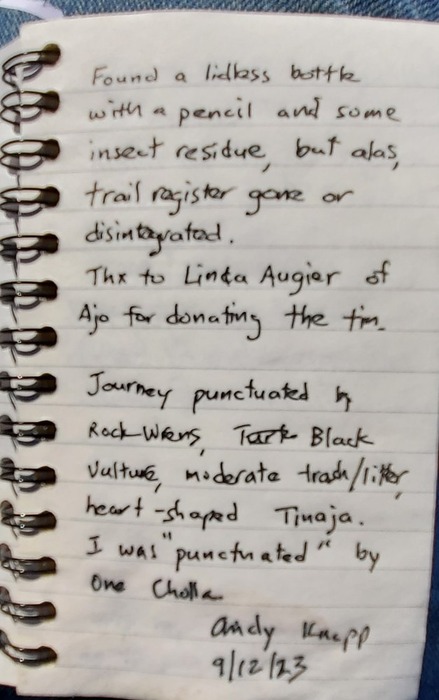 Found a lidless bottle
with a pencil and some
insect residue, but alas,
trail register gone or
disintegrated.
Thx to Linda Augier of
Ajo for donating the tin.
Journey punctuated by
Rock Wrens, Turk Black
Vulture, moderate trash/litter,
heart-shaped Tinaja.
I was "punctuated" by
One Cholla.
Andy Knapp
9/12/23